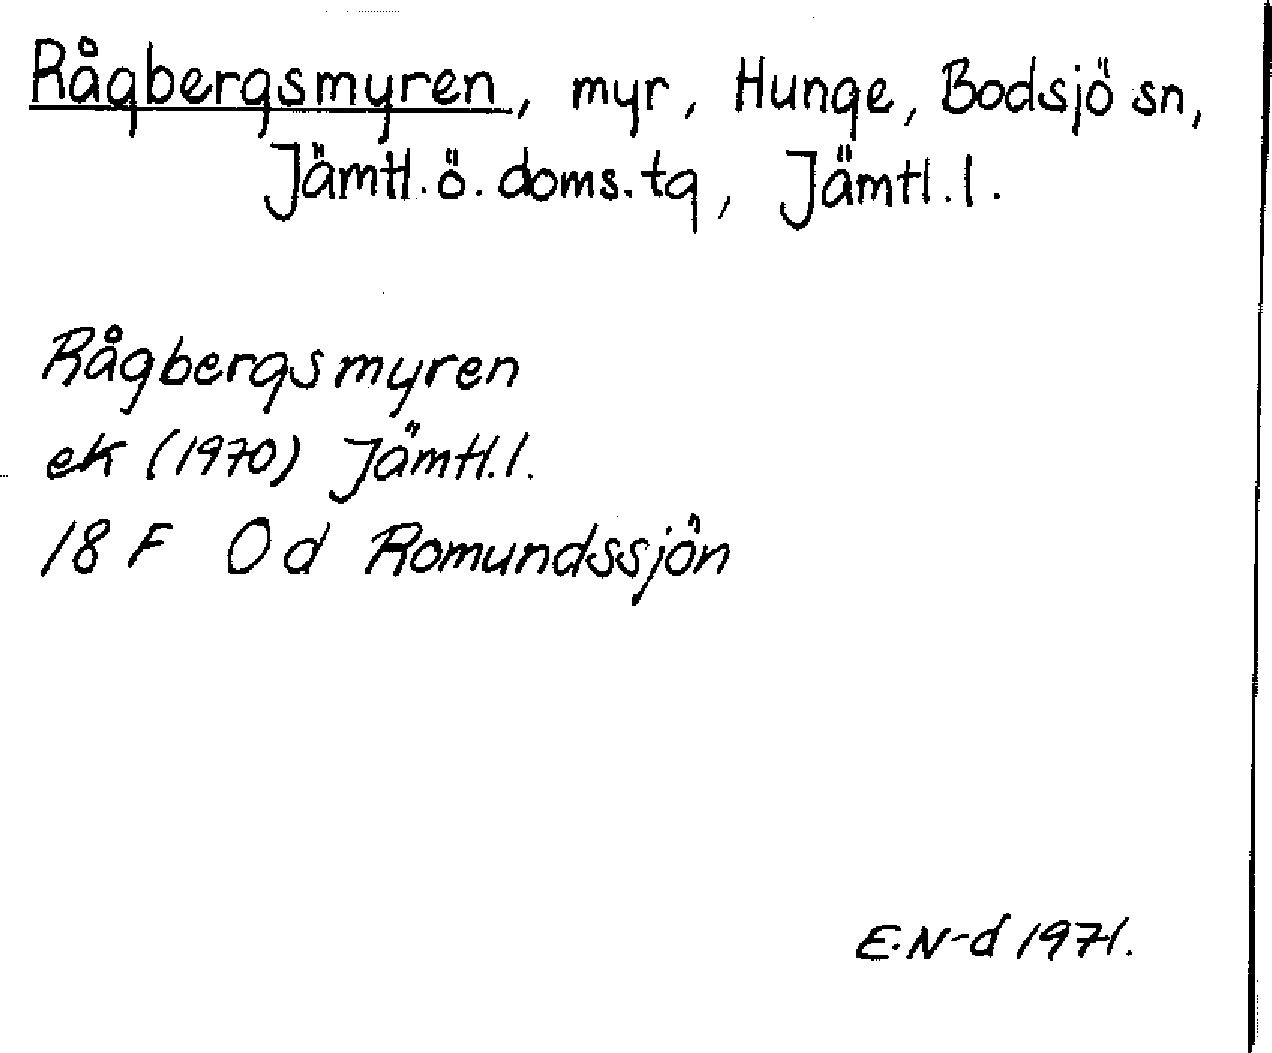 Rågbergsmyren, myr, Hunge, Bodsjö sn,
Jämtl. ö. doms. tg, Jämtl. l.
Rågbergsmyren
ek (1970) Jämtl. l.
18 F 0 d Romundssjön
E. N-d 1971.